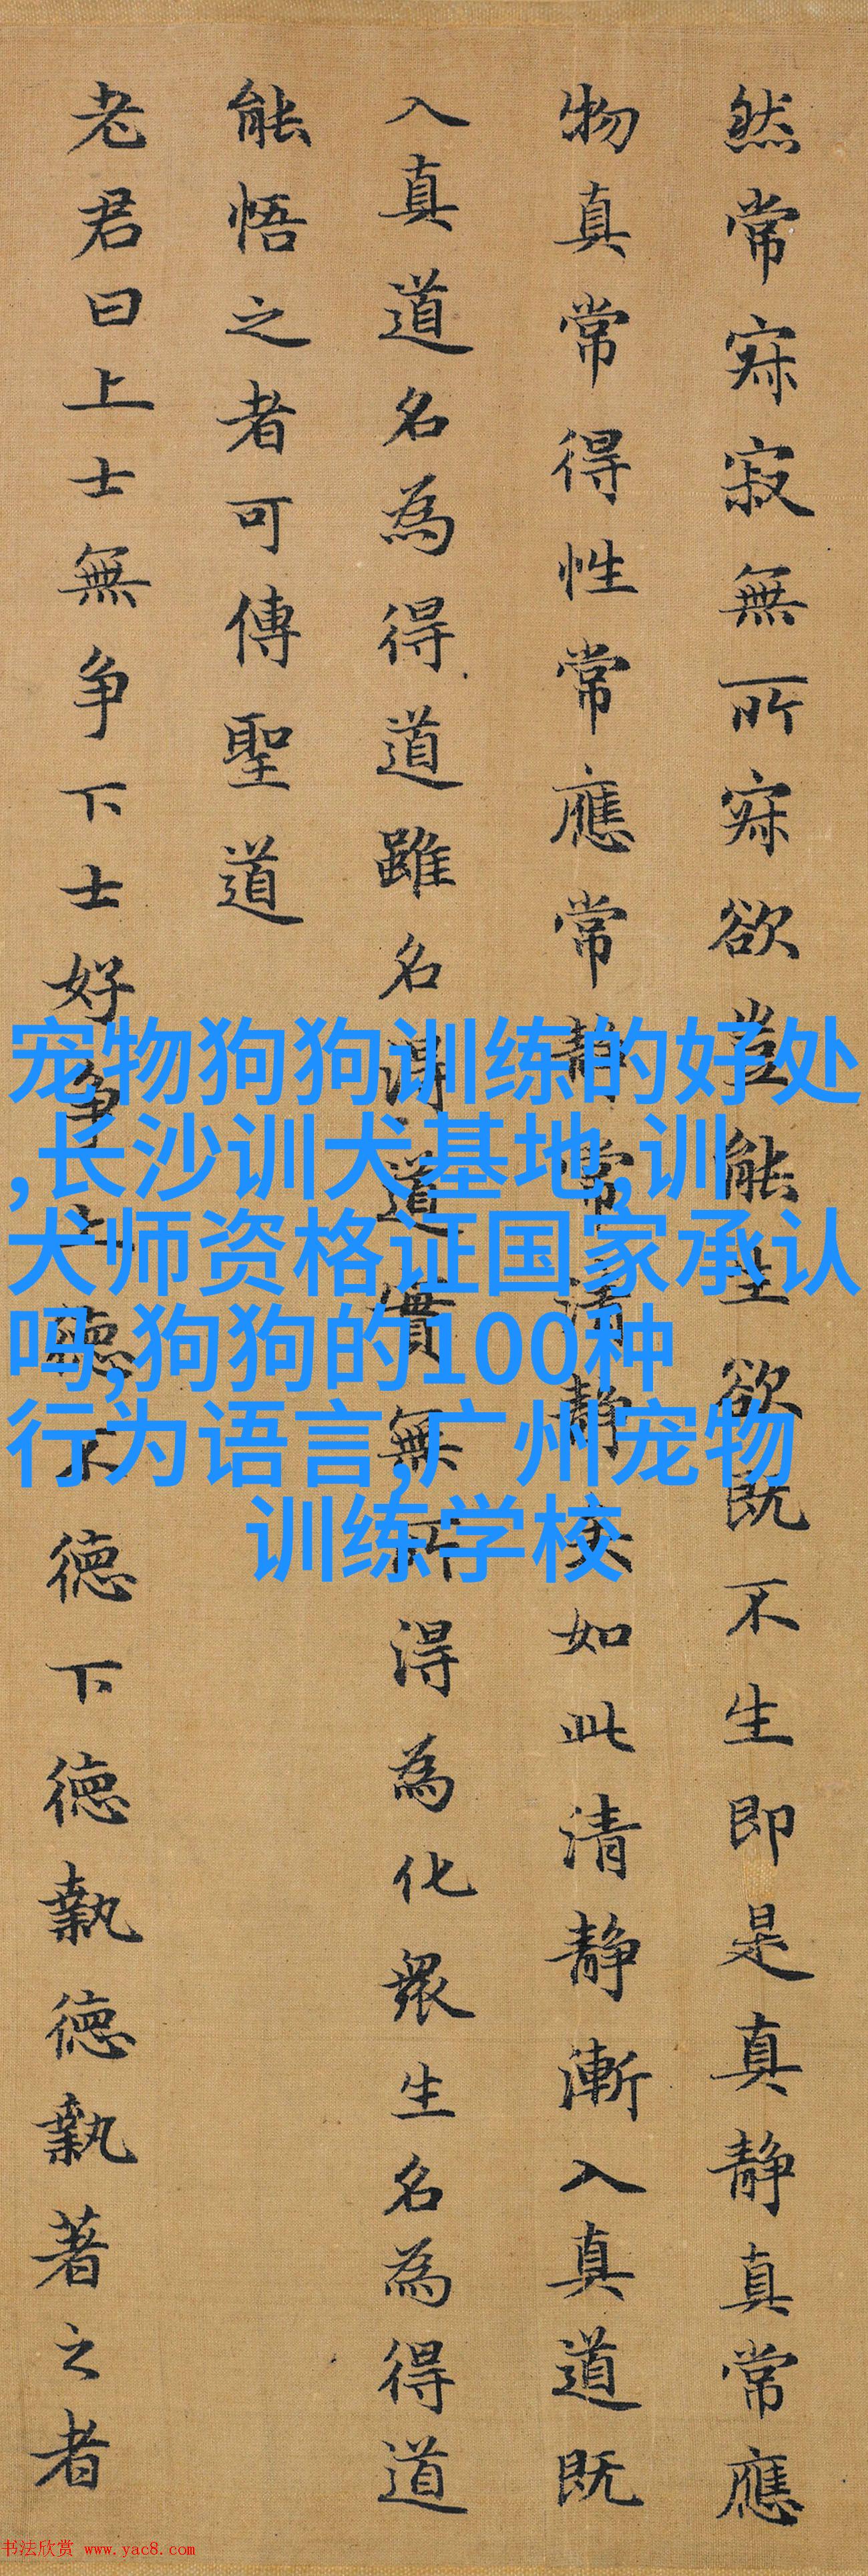 然常寂寂無所寂欲豈能生欲既不生即是真静真常應
物真常得性常應常静常清静矣如此清静漸入真道既
入真道名為得道雖名得道實無所得為化眾生名為得道
能悟之者可傳聖道
老君曰上士無争下士好争上德不德下德執德執著之者
宠物狗狗训练的好处
,长沙训犬基地,训
犬师资格证国家承认
吗,狗狗的100种
行为语言,广州宠物
训练学校
书法欣赏 www.yac8.com